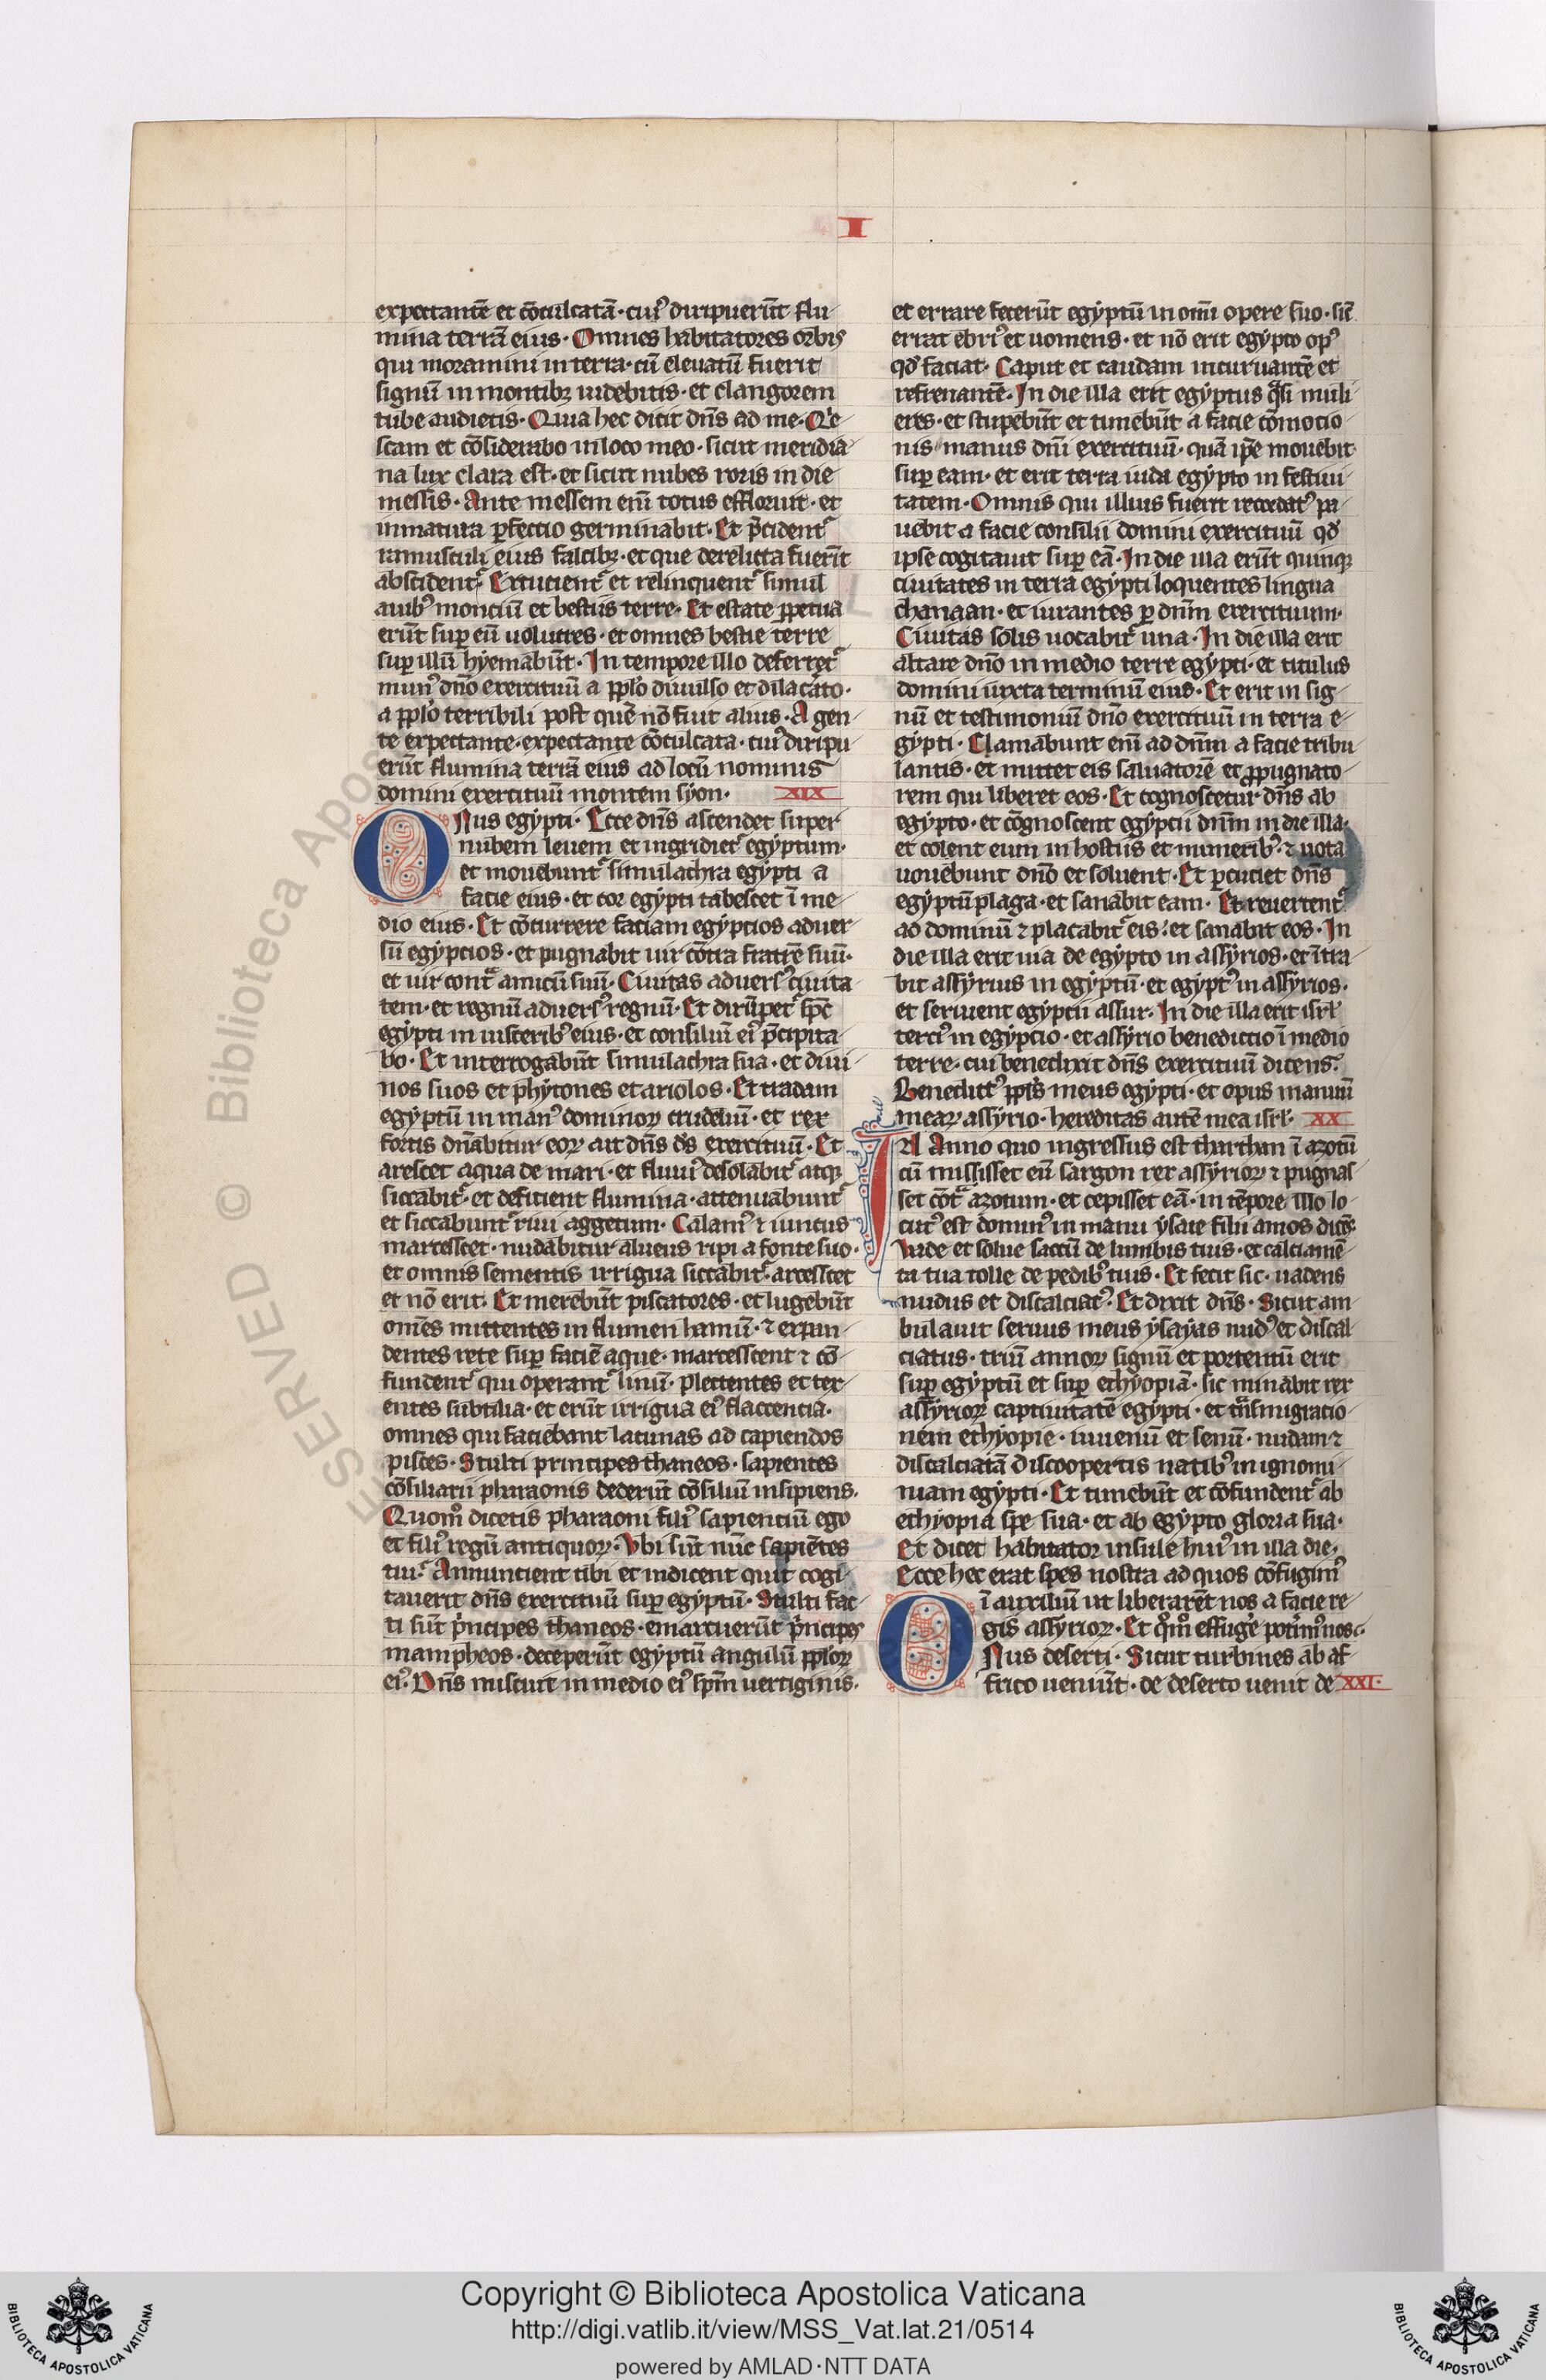 I
expectantē et cōculcatā · cuiꝰ diripuerūt flu-
mina terrā eius · Omnes habitatores orbis
qui moramini in terra · cū eleuatū fuerit
signū in montibꝫ uidebitis · et clangorem
tube audietis · Quia hec dicit dn̄s ad me · Qͥe-
scam et cōsiderabo in loco meo · sicut meridia-
na lux clara est · et sicut nubes roris in die
messis · Ante messem enī totus effloruit · et
inmatura ꝑfectio germinabit · Et p̄cident᷑
ramusculi eius falcibꝫ · et que derelicta fuerīt
abscident᷑ · Excucient᷑ et relinquent᷑ simul
auibꝰ monciū et bestiis terre · Et estate ꝑpetua
erūt suꝑ eū uolucres · et omnes bestie terre
suꝑ illū hyemabūt · In tempore illo deferret᷑
munꝰ dn̄o exercituū a pp̄lo diuulso et dilacāto ·
a pp̄lo terribili post quē nō fuit alius · A gen-
te expectante · expectante cōculcata · cuiꝰ diripu-
erūt flumina terrā eius ad locū nominis
domini exercituū montem syon · XIX
ONus egypti · Ecce dn̄s ascendet super
nubem leuem et ingrediet᷑ egyptum ·
et mouebunt᷑ simulachra egypti a
facie eius · et cor egypti tabescet ī me-
dio eius · Et cōcurrere faciam egyptios aduer-
sū egyptios · et pugnabit uir cōtra fratrē suū ·
et uir contᵃ amicū suū · Ciuitas aduersꝰ ciuita-
tem · et regnū aduersꝰ regnū · Et dirūpet᷑ sp̄c
egypti in uisceribꝰ eius · et consiliū eiꝰ p̄cipita-
bo · Et interrogabūt simulachra sua · et diui-
nos suos et phytones et ariolos · Et tradam
egyptū in manꝰ dominoꝝ crudeliū · et rex
fortis dn̄abitur eoꝝ ait dn̄s dꝰs exercituū · Et
arescet aqua de mari · et fluuiꝰ desolabit᷑ atqꝫ
siccabit᷑ · et deficient flumina · attenuabunt᷑
et siccabunt᷑ riui aggerum · Calamꝰ ⁊ iuncus
marcesscet · nudabitur alueus ripi a fonte suo ·
et omnis sementis irrigua siccabit᷑ · arcesscet
et nō erit · Et merebūt piscatores · et lugebūt
om̄es mittentes in flumen hamū · ⁊ expan-
dentes rete suꝑ faciē aque · marcesscent ⁊ cō-
fundent᷑ qui operant᷑ linū · plectentes et tex-
entes subtilia · et erūt irrigua eiꝰ flaccencia ·
omnes qui faciebant lacunas ad capiendos
pisces · Stulti principes thaneos · sapientes
cōsiliarii pharaonis dederūt cōsiliū insipiens ·
Quomº dicetis pharaoni filiꝰ sapientiū ego
et filiꝰ regū antiquoꝝ · Vbi sūt nūc sapiētes
tui · Annuncient tibi et indicent quit cogi-
tauerit dn̄s exercituū suꝑ egyptū · Stulti fac-
ti sūt pͥncipes thaneos · emarcuerūt pͥncipes
mampheos · deceperūt egyptū angulū pp̄loꝝ
eiꝰ · Dn̄s miscuit in medio eiꝰ sp̄m uertiginis ·
et errare fecerūt egyptū in omī opere suo · sic̄
errat ebriꝰ et uomens · et nō erit egypto opꝰ
qd̓ faciat · Caput et caudam incuruantē et
refrenantē · In die illa erit egyptus qᵃsi muli-
eres · et stupebūt et timebūt a facie cōmocio-
nis manus dn̄i exercituū · quā ip̄e mouebit
suꝑ eam · et erit terra iuda egypto in festiui-
tatem · Omnis qui illius fuerit recordatꝰ pa-
uebit a facie consilii domini exercituū qd̓
ipse cogitauit suꝑ eā · In die illa erūt quinqꝫ
ciuitates in terra egypti loquentes lingua
chanaan · et iurantes ꝑ dn̄m exercituum ·
Ciuitas solis uocabit᷑ una · In die illa erit
altare dn̄o in medio terre egypti · et titulus
domini iuxta terminū eius · Et erit in sig-
nū et testimoniū dn̄o exercituū in terra e-
gypti · Clamabunt enī ad dn̄m a facie tribu-
lantis · et mittet eis saluatorē et ꝓpugnato-
rem qui liberet eos · Et cognoscetur dn̄s ab
egypto · et cōgnoscent egyptii dn̄m in die illa ·
et colent eum in hostiis et muneribꝰ · ⁊ uota
uouebunt dn̄o et soluent · Et ꝑcuciet dn̄s
egyptū plaga · et sanabit eam · Et reuertent᷑
ad dominū ⁊ placabit᷑ eis · et sanabit eos · In
die illa erit uia de egypto in assyrios · et ītra-
bit assyrius in egyptū · et egyptꝰ in assyrios ·
et seruient egyptii assur · In die illa erit isrl̓
terciꝰ in egyptio · et assyrio benedictio ī medio
terre · cui benedixit dn̄s exercituū dicens ·
Benedictꝰ pp̄ls meus egypti · et opus manuū
meaꝝ assyrio · hereditas autē mea isrl̓ · XX
IN Anno quo ingressus est tharthan ī azotū
cū misisset eū sargon rex assyrioꝝ ⁊ pugnas-
set cōtᵃ azotum · et cepisset eā · in tēpore illo lo-
cutꝰ est dominꝰ in manu ysaie filii amos dicēs ·
Vade et solue saccū de lumbis tuis · et calciamē-
ta tua tolle de pedibꝰ tuis · Et fecit sic · uadens
nudus et discalciatꝰ · Et dixit dn̄s · Sicut am-
bulauit seruus meus ysayas nudꝰ et discal-
ciatus · triū annoꝝ signū et portentū erit
suꝑ egyptū et suꝑ ethyopiā · sic minabit rex
assyrioꝝ captiuitatē egypti · et trᵃsmigratio-
nem ethyopie · iuuenū et senū · nudam ⁊
discalciatā discoopertis natibꝰ in ignomi-
niam egypti · Et timebūt et cōfundent᷑ ab
ethyopia spe sua · et ab egypto gloria sua ·
Et dicet habitator insule huiꝰ in illa die ·
Ecce hec erat spes nostra ad quos cōfugimꝰ
ī auxiliū ut liberarēt nos a facie re-
gis assyrioꝝ · Et qºmº effugē potͥmꝰ nos ·
ONus deserti · Sicut turbines ab af-
frico ueniūt · de deserto uenit de XXI ·
Copyright © Biblioteca Apostolica Vaticana
http://digi.vatlib.it/view/MSS_Vat.lat.21/0514
powered by AMLAD·NTT DATA
BIBLIOTECA APOSTOLICA VATICANA
BIBLIOTECA APOSTOLICA VATICANA